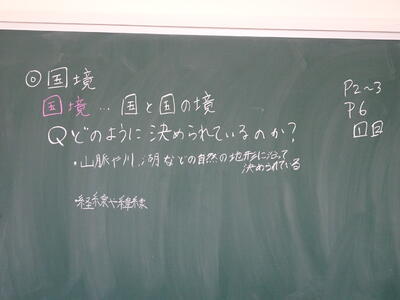 ◎国境
国境…国と国の境
Qどのように決められているのか？
・山脈や川、湖などの自然の地形に沿って
決められている
・経線や緯線
P2〜3
P6
1 2